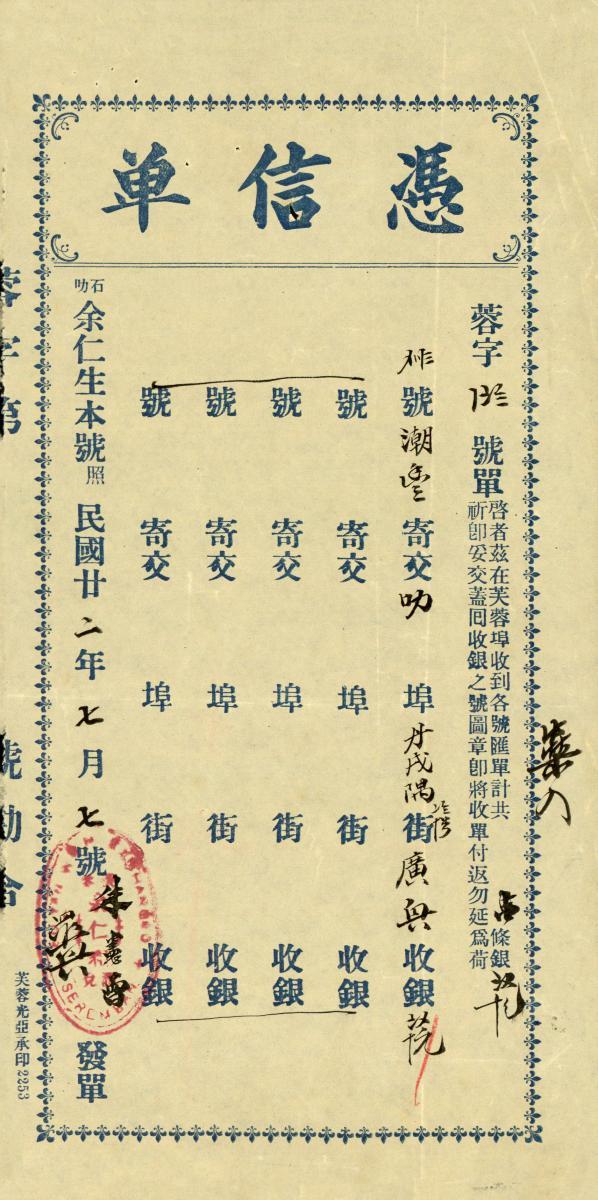 憑信单
蓉字 號單
啓者茲在芙蓉埠收到各號匯單計共 條銀
祈即妥交蓋囘收銀之號圖章即將收單付返勿延爲荷
號潮豐寄交叻埠丹戎隅街廣興收銀
號寄交埠街收銀
號寄交埠街收銀
號寄交埠街收銀
號寄交埠街收銀
石叻余仁生本號照 民國廿二年七月七號 發單
SEREMBAN
蓉字第 號勘合
芙蓉光亞承印 2253